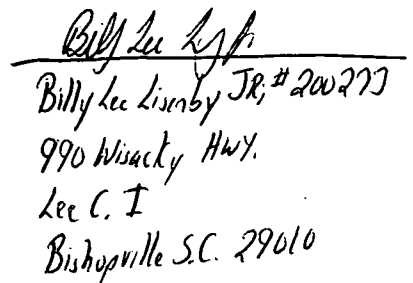 Billy Lee L Jr
Billy Lee Lisenby JR, #200273
990 Wisacky Hwy.
Lee C. I
Bishopville S.C. 29010